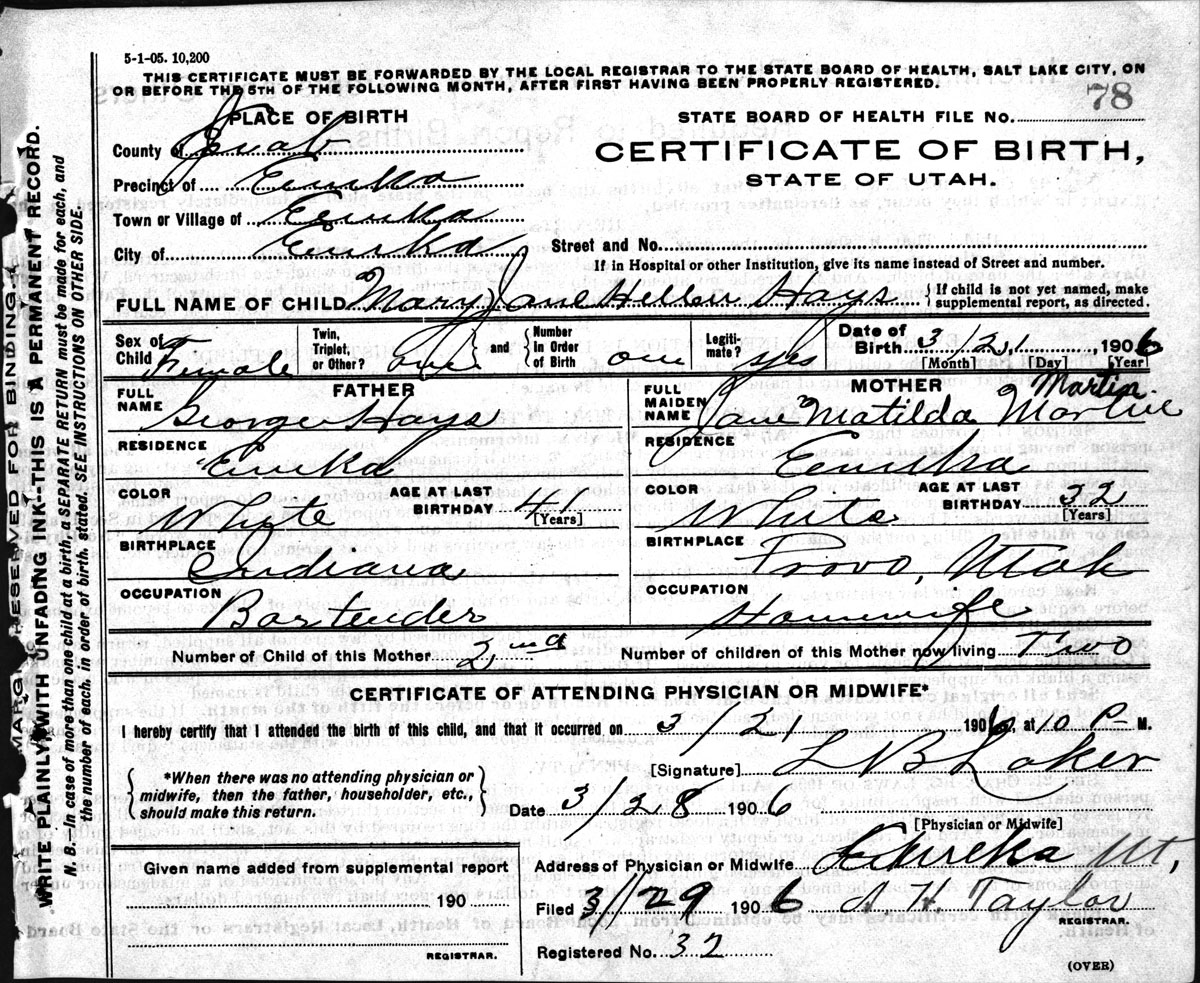 5-1-05. 10,200
THIS CERTIFICATE MUST BE FORWARDED BY THE LOCAL REGISTRAR TO THE STATE BOARD OF HEALTH, SALT LAKE CITY, ON
OR BEFORE THE 5TH OF THE FOLLOWING MONTH, AFTER FIRST HAVING BEEN PROPERLY REGISTERED.
78
PLACE OF BIRTH
STATE BOARD OF HEALTH FILE NO.
County of Juab
CERTIFICATE OF BIRTH,
STATE OF UTAH.
Precinct of Eureka
Town or Village of Eureka
City of Eureka
Street and No.
If in Hospital or other Institution, give its name instead of Street and number.
FULL NAME OF CHILD Mary Jane Hellen Hays
If child is not yet named, make supplemental report, as directed.
Sex of Child Female
Twin, Triplet, or Other? one
and Number In Order of Birth one
Legiti-mate? yes
Date of Birth 3/21, 1906
[Month] [Day] [Year]
FATHER
MOTHER
FULL NAME George Hays
FULL MAIDEN NAME Jane Matilda Martin
Martin
RESIDENCE Eureka
RESIDENCE Eureka
COLOR Whyte AGE AT LAST BIRTHDAY 41 [Years]
COLOR White AGE AT LAST BIRTHDAY 32 [Years]
BIRTHPLACE Indiana
BIRTHPLACE Provo, Utah
OCCUPATION Bartender
OCCUPATION Housewife
Number of Child of this Mother 2nd
Number of children of this Mother now living Two
CERTIFICATE OF ATTENDING PHYSICIAN OR MIDWIFE*
I hereby certify that I attended the birth of this child, and that it occurred on 3/21 1906, at 10 P M.
*When there was no attending physician or midwife, then the father, householder, etc., should make this return.
[Signature] L B Laker
Date 3/28 1906
[Physician or Midwife]
Given name added from supplemental report
190
REGISTRAR.
Address of Physician or Midwife Eureka Ut,
Filed 3/29 1906 Taylor
REGISTRAR.
Registered No. 32
(OVER)
MARGIN RESERVED FOR BINDING
WRITE PLAINLY WITH UNFADING INK--THIS IS A PERMANENT RECORD.
N. B.--In case of more than one child at a birth, a SEPARATE RETURN must be made for each, and
the number of each, in order of birth, stated. SEE INSTRUCTIONS ON OTHER SIDE.